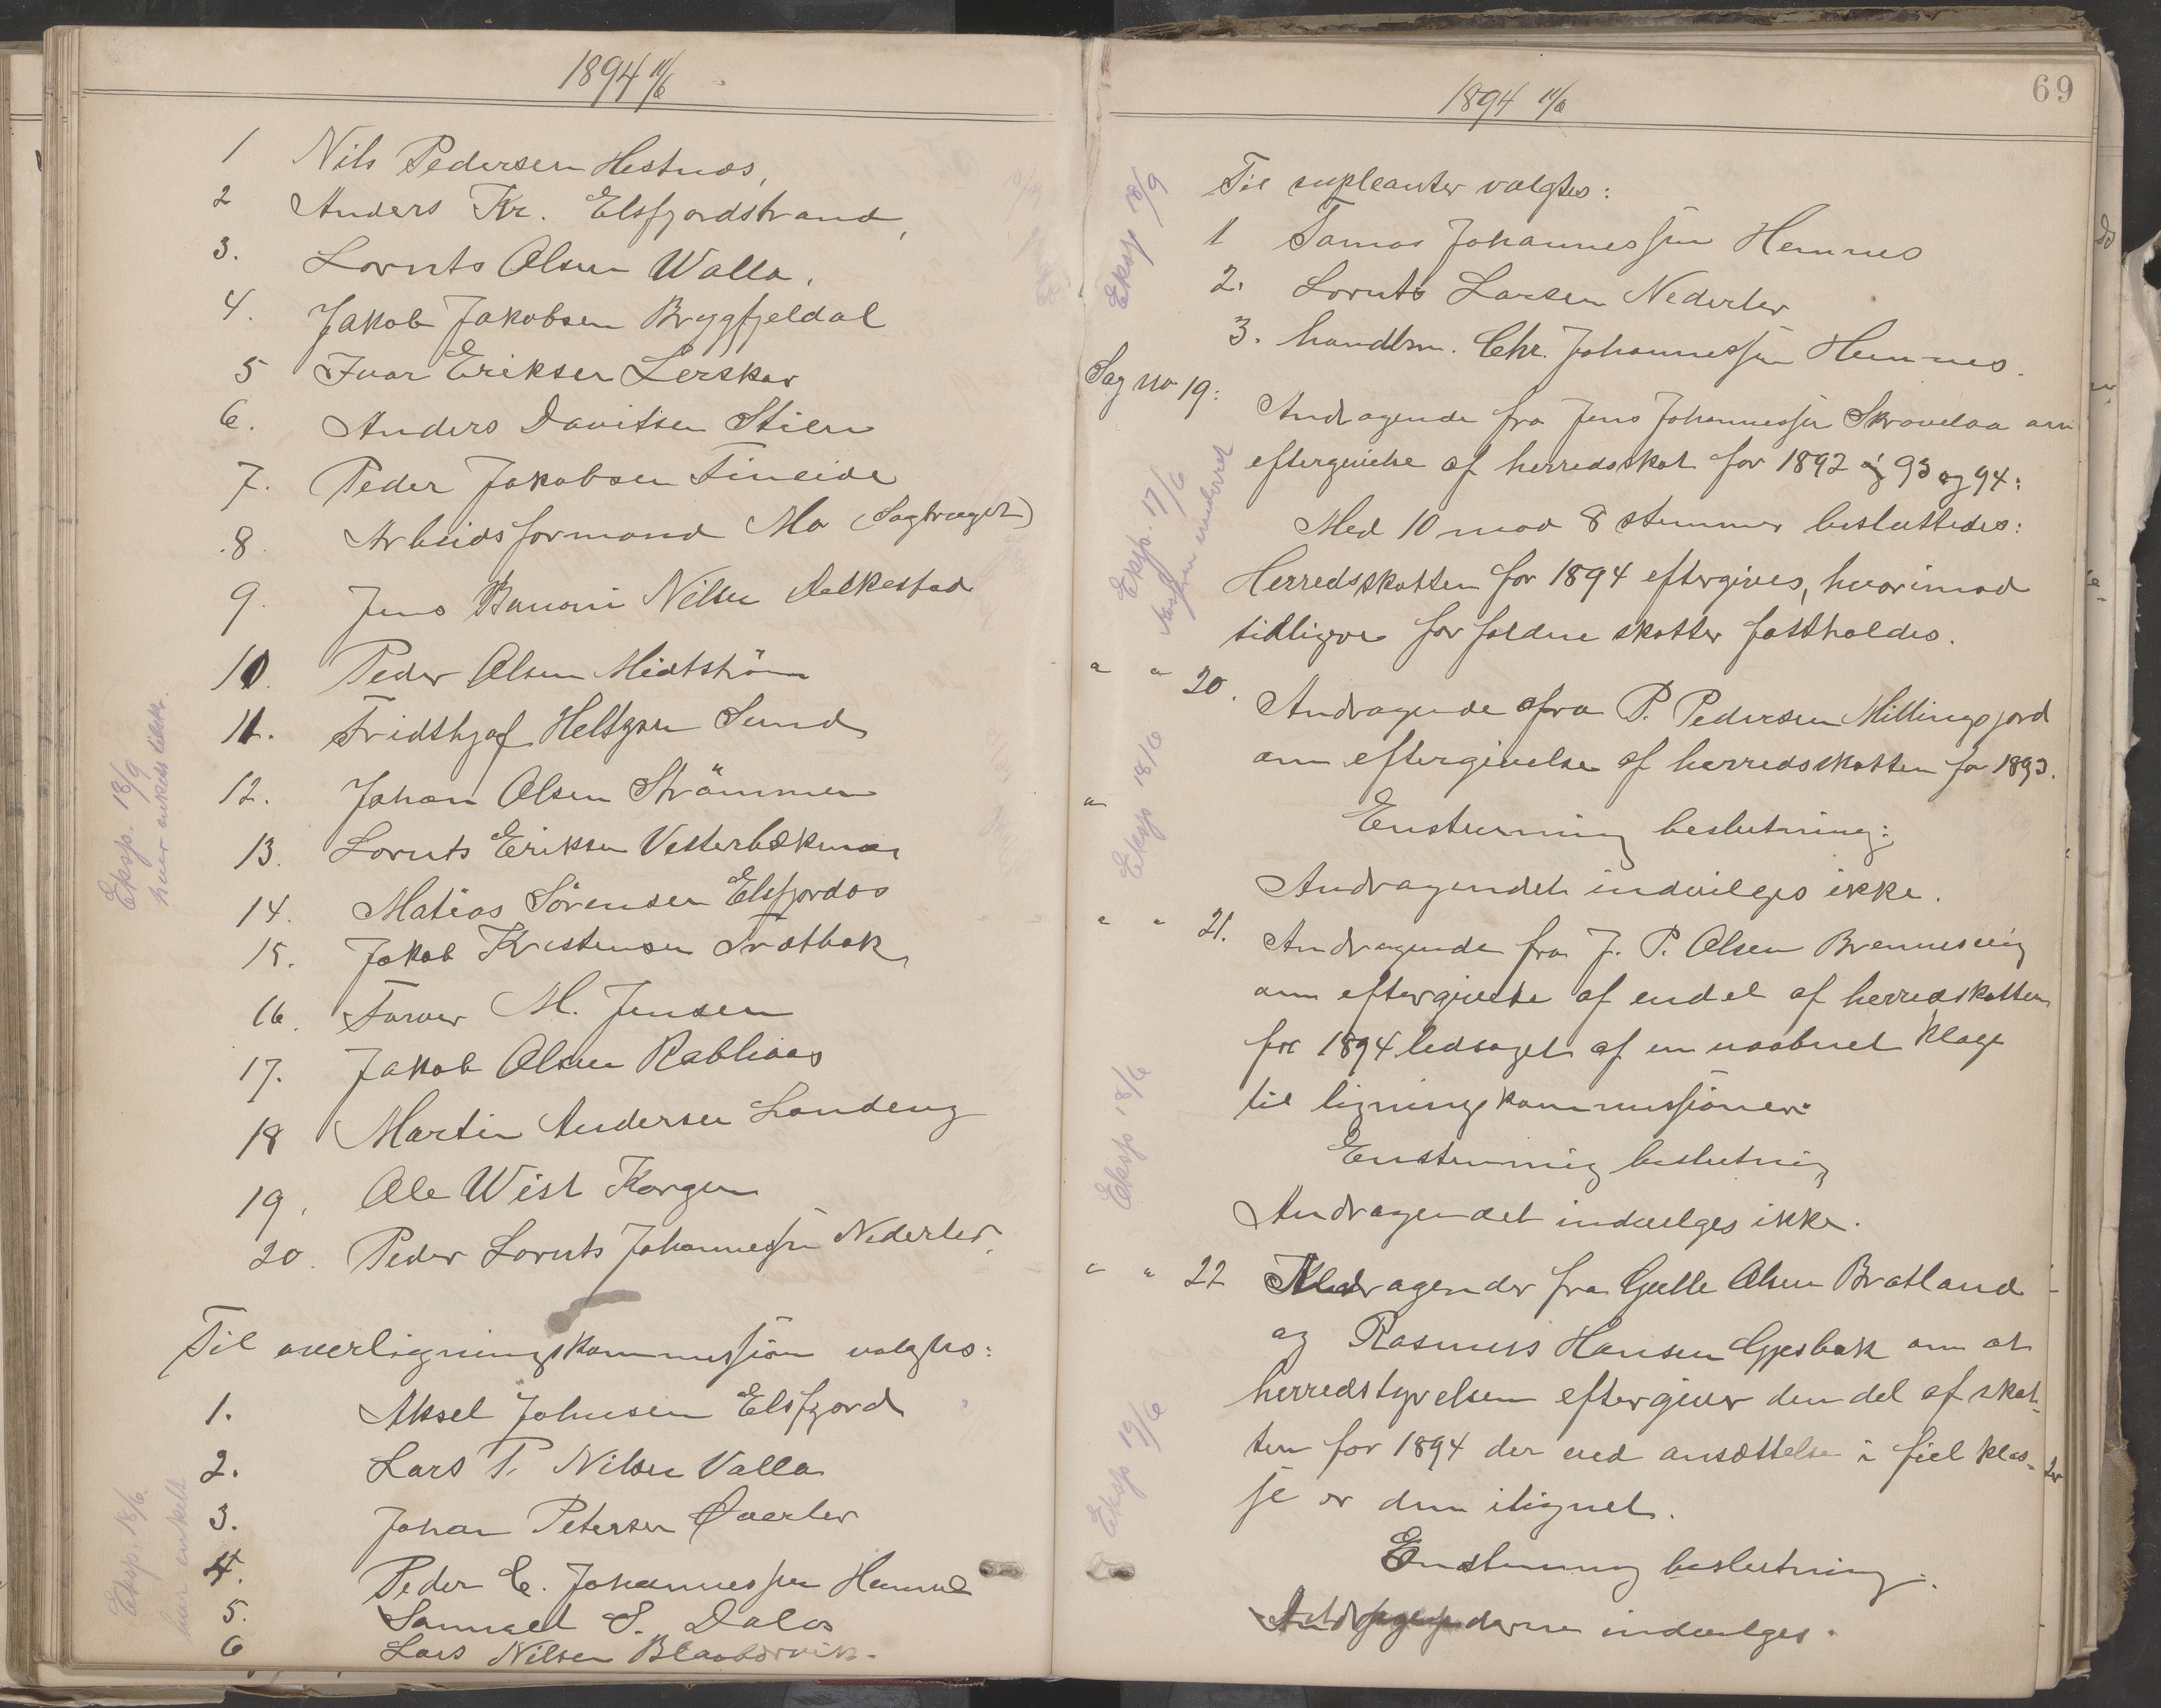 1894 11/6
1 Nils Pedersen Hestnes,
2 Anders Kr. Elsfjordstrand,
3. Lornts Olsen Walla,
4. Jakob Jakobsen Bryggfjeldal
5 Ivar Eriksen Lerskar
6. Anders Davitsen Stien
7. Peder Jakobsen Fineide
8. Arbeidsformand Mo (Sagbruget)
9. Jens Benoni Nilsen
10. Peder Olsen Midtström
11. Fridthjof Heltzen Sund
12. Johan Olsen Strömmen
13. Lornts Eriksen
14. Matias Sörensen Elsfjordos
15. Jakob Kristensen Trætbak
16. Farver M. Jensen
17. Jakob Olsen Rabliaas
18 Martin Andersen Landeng
19. Ole Wist Korgen
20. Peder Lornts Johannessen Nederler.
Eksp. 18/9
hver enkelt tilsk.
Til overligningskommission valgtes:
1. Aksel Johnsen Elsfjord
2. Lars P. Nilsen Valla
3. Johan Petersen Øverler
4. Peder C. Johannessen Hemnes
5. Samuel S. Dalos
6 Lars Nilsen
Eksp. 18/6.
hver enkelt
69
1894 11/6
Til supleanter valgtes:
1 Tomas Johannessen Hemnes
2. Lornts Larsen Nederler
3. handlsm. Chr. Johannessen Hemnes.
Eksp 18/9
Sag no 19: Andragende fra Jens Johannessen Skravelaa om
eftergivelse af herredsskat for 1892 og 93 og 94:
Med 10 mod 8 stemmer besluttedes:
Herredsskatten for 1894 eftergives, hvorimod
tidligere forfaldne skatter fastholdes.
Eksp. 17/6
underret
" " 20. Andragende fra P. Pedersen Millingsjord
om eftergivelse af herredsskatten for 1893.
" Enstemmig beslutning:
Andragendet indvilges ikke.
Eksp 18/6
" " 21. Andragende fra J. P. Olsen Brennesvig
om eftergivelse af endel af herredskatten
for 1894 ledsaget af en uaabnet klage
til ligningskommissionen:
Enstemmig beslutning
Andragendet indvilges ikke.
Eksp 18/6
" " 22 Andragender fra Gulle Olsen Bratland
og Rasmus Hansen Gjesbak om at
herredstyrelsen eftergiver den del af skat-
ten for 1894 der ved ansættelse i feil klas-
se er dem iliget.
Enstemmig beslutning:
Andragenderne indvilges.
Eksp 19/6